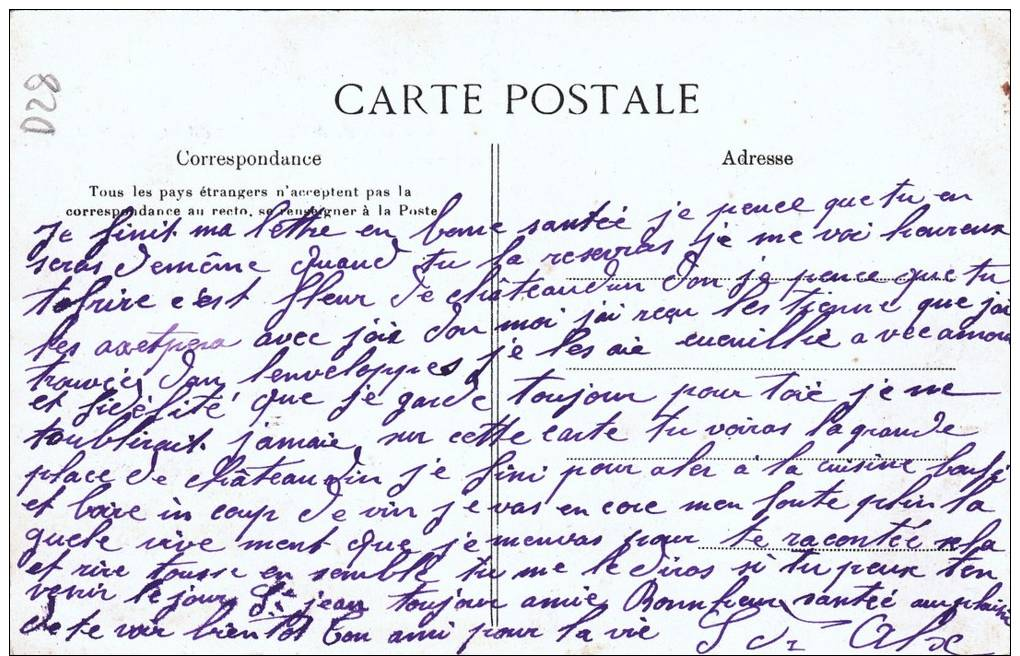 D28
CARTE POSTALE
Correspondance
Adresse
Tous les pays étrangers n'acceptent pas la
correspondance au recto, se renseigner à la Poste
je finit ma lettre en bonne santée je pence que tu en
seras demême quand tu la resevras je me voi heureux
c'est fleur de châteaudun don je pence que tu
les avec joix don moi jai reçu les tienne que jai
trouvées dan lenveloppes je les aie cueuillie avec amour
et fidélité que je garde toujour pour toië je ne
toublirait jamaie sur cette carte tu voiras la grande
place de châteaudin je fini pour aler à la cuisine
et boire in coup de vin je vas en core men foute plin la
quele vive ment que je menvas pour te racontée sela
et rire tousse en semble tu me le diras si tu peux ten
venir le jour St jean toujour amie santée au plaisir
de te voir bientot ton ami pour la vie